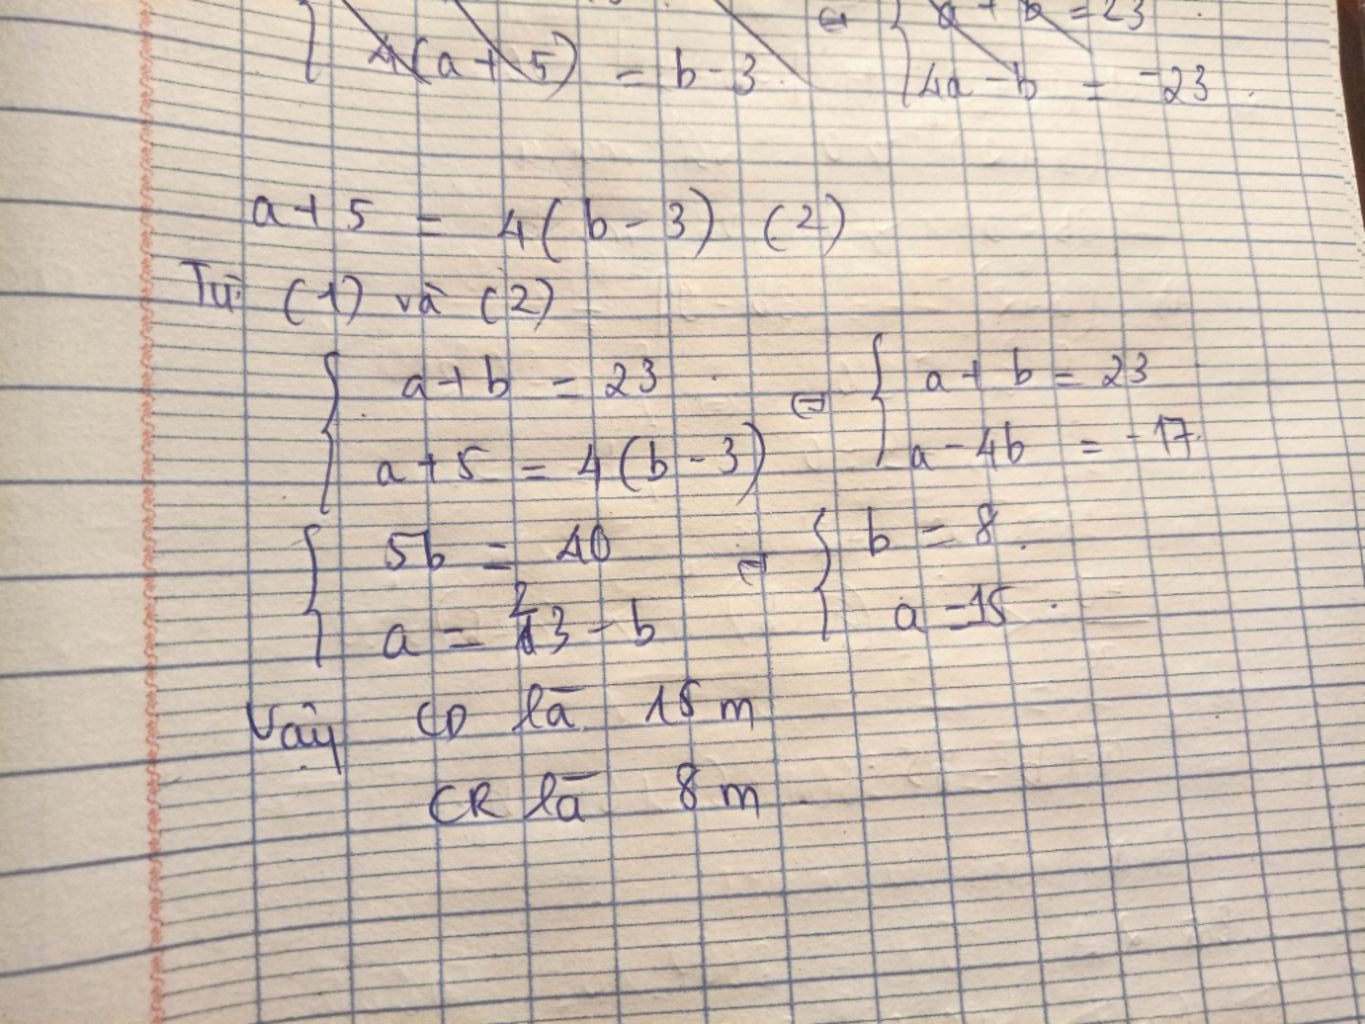 4(a + 5) = b - 3
⇔ { a + b = 23
4a - b = -23
a + 5 = 4(b - 3) (2)
Từ (1) và (2)
{ a + b = 23 ⇔ { a + b = 23
a + 5 = 4(b - 3) a - 4b = -17
{ 5b = 40 ⇔ { b = 8
a = 23 - b a = 15
Vậy CD là 15 m
CR là 8 m